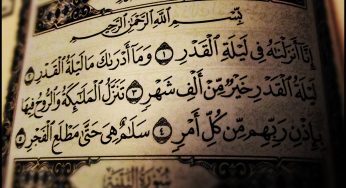 بِسْمِ اللَّهِ الرَّحْمَٰنِ الرَّحِيمِ
إِنَّا أَنزَلْنَٰهُ فِى لَيْلَةِ الْقَدْرِ ١ وَمَا أَدْرَىٰكَ مَا لَيْلَةُ الْقَدْرِ ٢
لَيْلَةُ الْقَدْرِ خَيْرٌ مِّنْ أَلْفِ شَهْرٍ ٣ تَنَزَّلُ الْمَلَٰئِكَةُ وَالرُّوحُ فِيهَا
بِإِذْنِ رَبِّهِم مِّن كُلِّ أَمْرٍ ٤ سَلَٰمٌ هِىَ حَتَّىٰ مَطْلَعِ الْفَجْرِ ٥
سُورَةُ الْبَيِّنَةِ